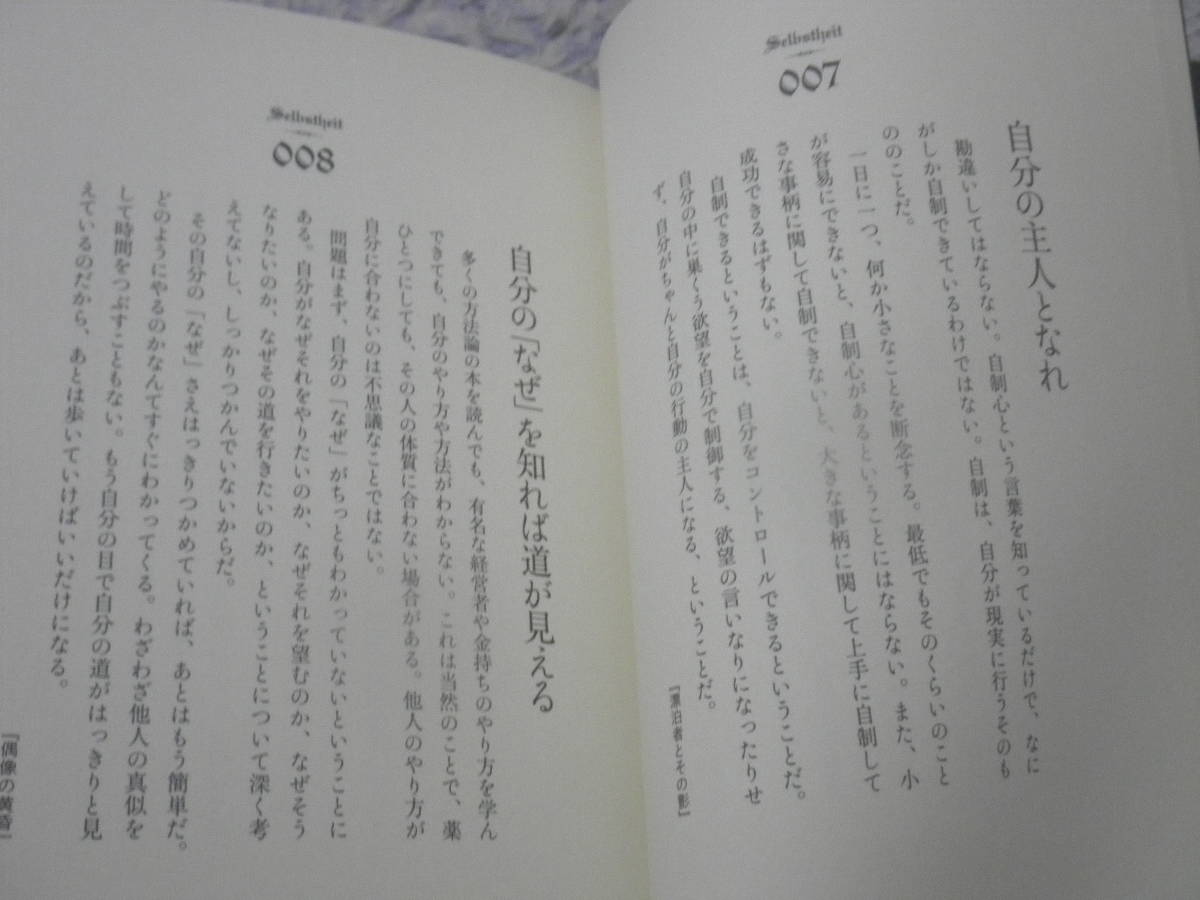 Selbstheit
007
自分の主人となれ
勘違いしてはならない。自制心という言葉を知っているだけで、なに
がしか自制できているわけではない。自制は、自分が現実に行うそのも
ののことだ。
一日に一つ、何か小さなことを断念する。最低でもそのくらいのこと
が容易にできないと、自制心があるということにはならない。また、小
さな事柄に関して自制できないと、大きな事柄に関して上手に自制して
成功できるはずもない。
自制できるということは、自分をコントロールできるということだ。
自分の中に巣くう欲望を自分で制御する、欲望の言いなりになったりせ
ず、自分がちゃんと自分の行動の主人になる、ということだ。
『漂泊者とその影』
Selbstheit
008
自分の「なぜ」を知れば道が見える
多くの方法論の本を読んでも、有名な経営者や金持ちのやり方を学ん
でも、自分のやり方や方法がわからない。これは当然のことで、薬
ひとつにしても、その人の体質に合わない場合がある。他人のやり方が
自分に合わないのは不思議なことではない。
問題はまず、自分の「なぜ」がちっともわかっていないということに
ある。自分がなぜそれをやりたいのか、なぜそれを望むのか、なぜそう
なりたいのか、なぜその道を行きたいのか、ということについて深く考
えてないし、しっかりつかんでいないからだ。
その自分の「なぜ」さえはっきりつかめていれば、あとはもう簡単だ。
どのようにやるのかなんてすぐにわかってくる。わざわざ他人の真似を
して時間をつぶすこともない。もう自分の目で自分の道がはっきりと見
えているのだから、あとは歩いていけばいいだけになる。
『偶像の黄昏』